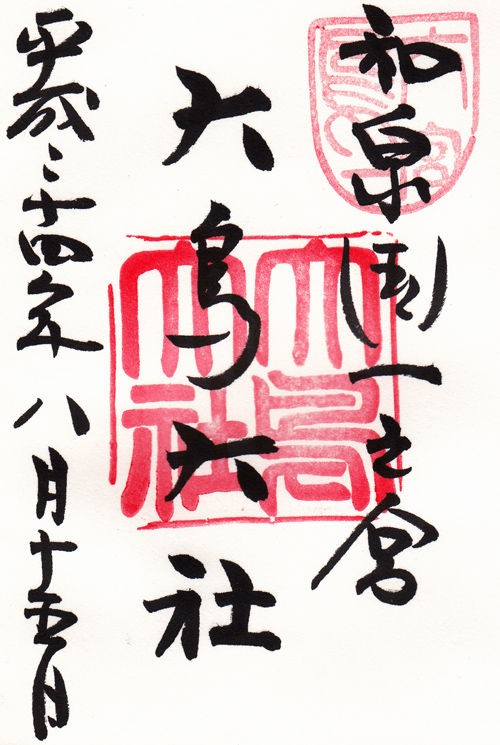 和泉国一之宮
大鳥大社
平成二十四年八月十五日
大鳥
大社